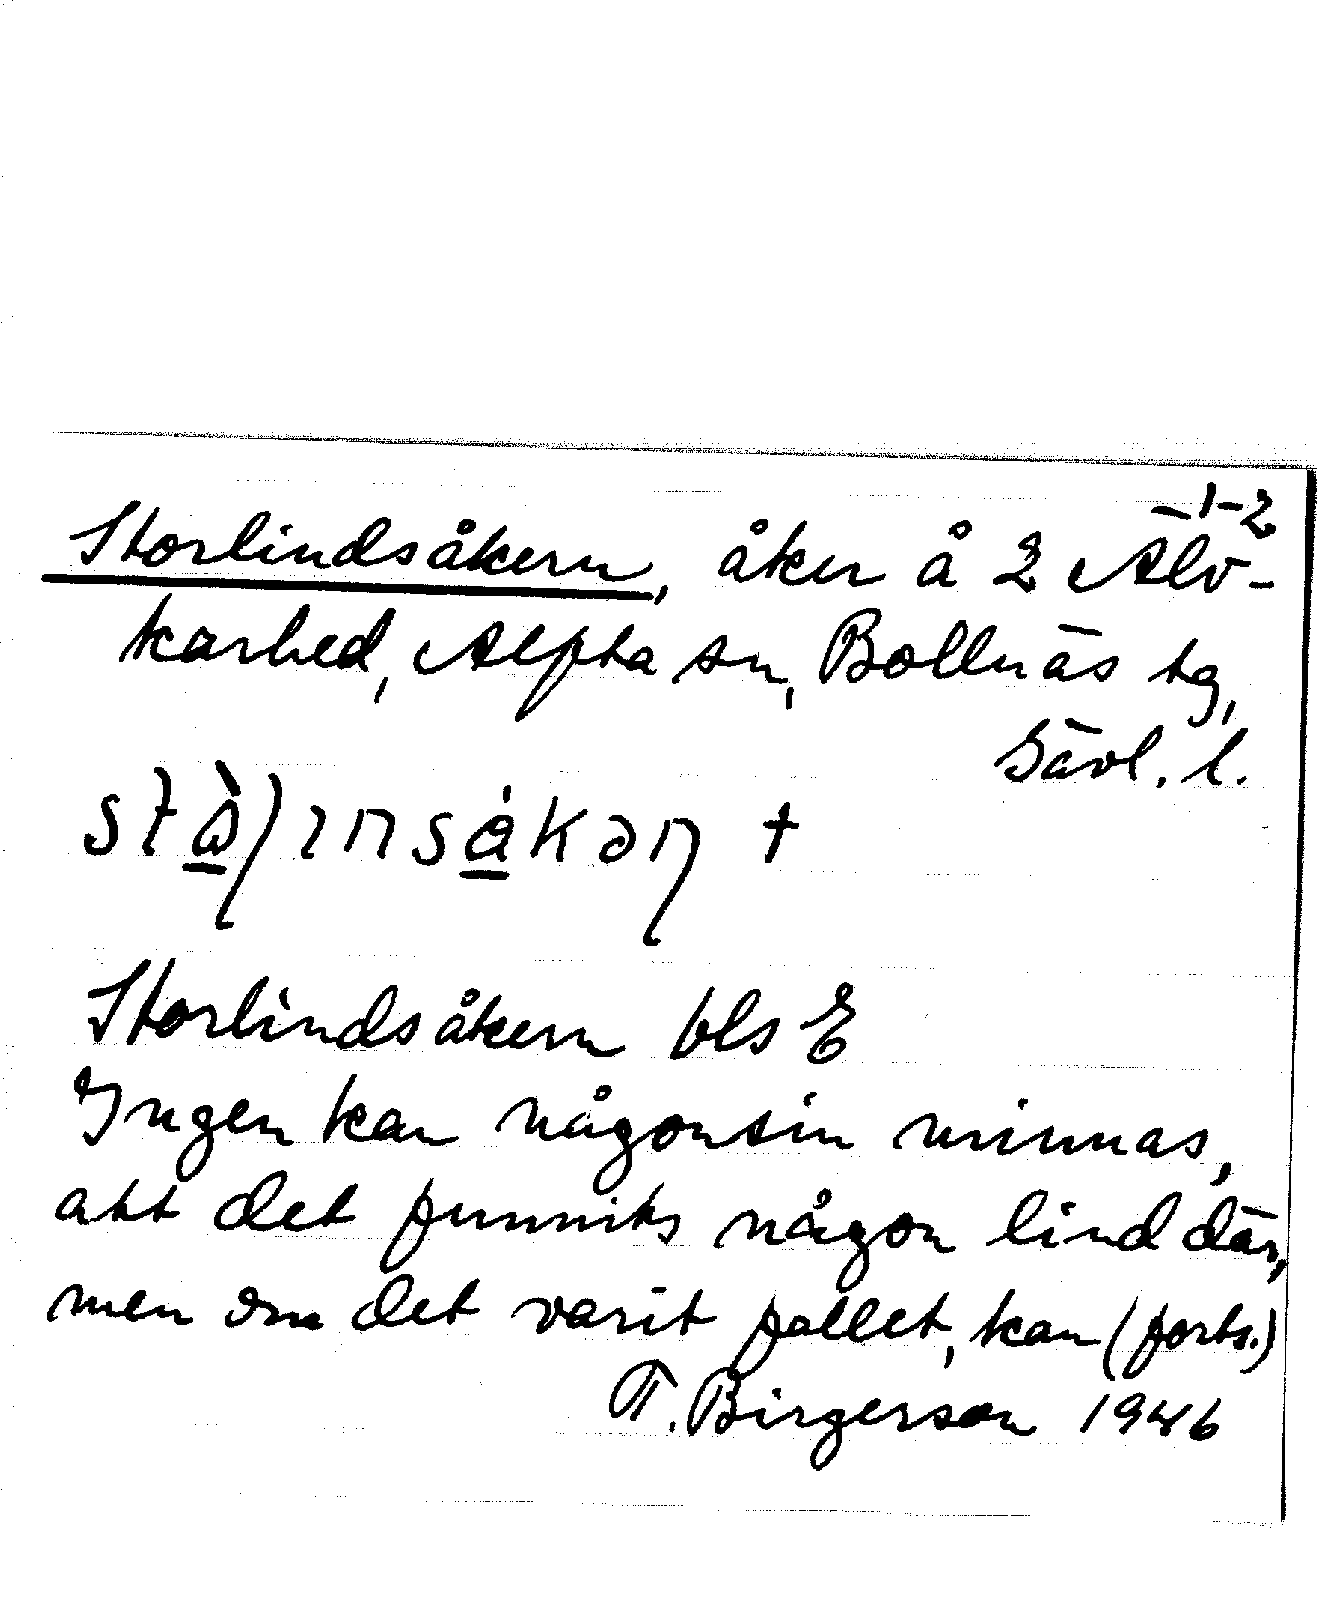 -1-2
Storlindsåkern, åker å 2 Älv-
karhed, Alfta sn, Bollnäs tg,
Gävl. l.
Storlindsåkern bls E
Ingen kan någonsin minnas,
att det funnits någon lind där,
men om det varit fallet, kan (forts.)
T. Birgerson 1946